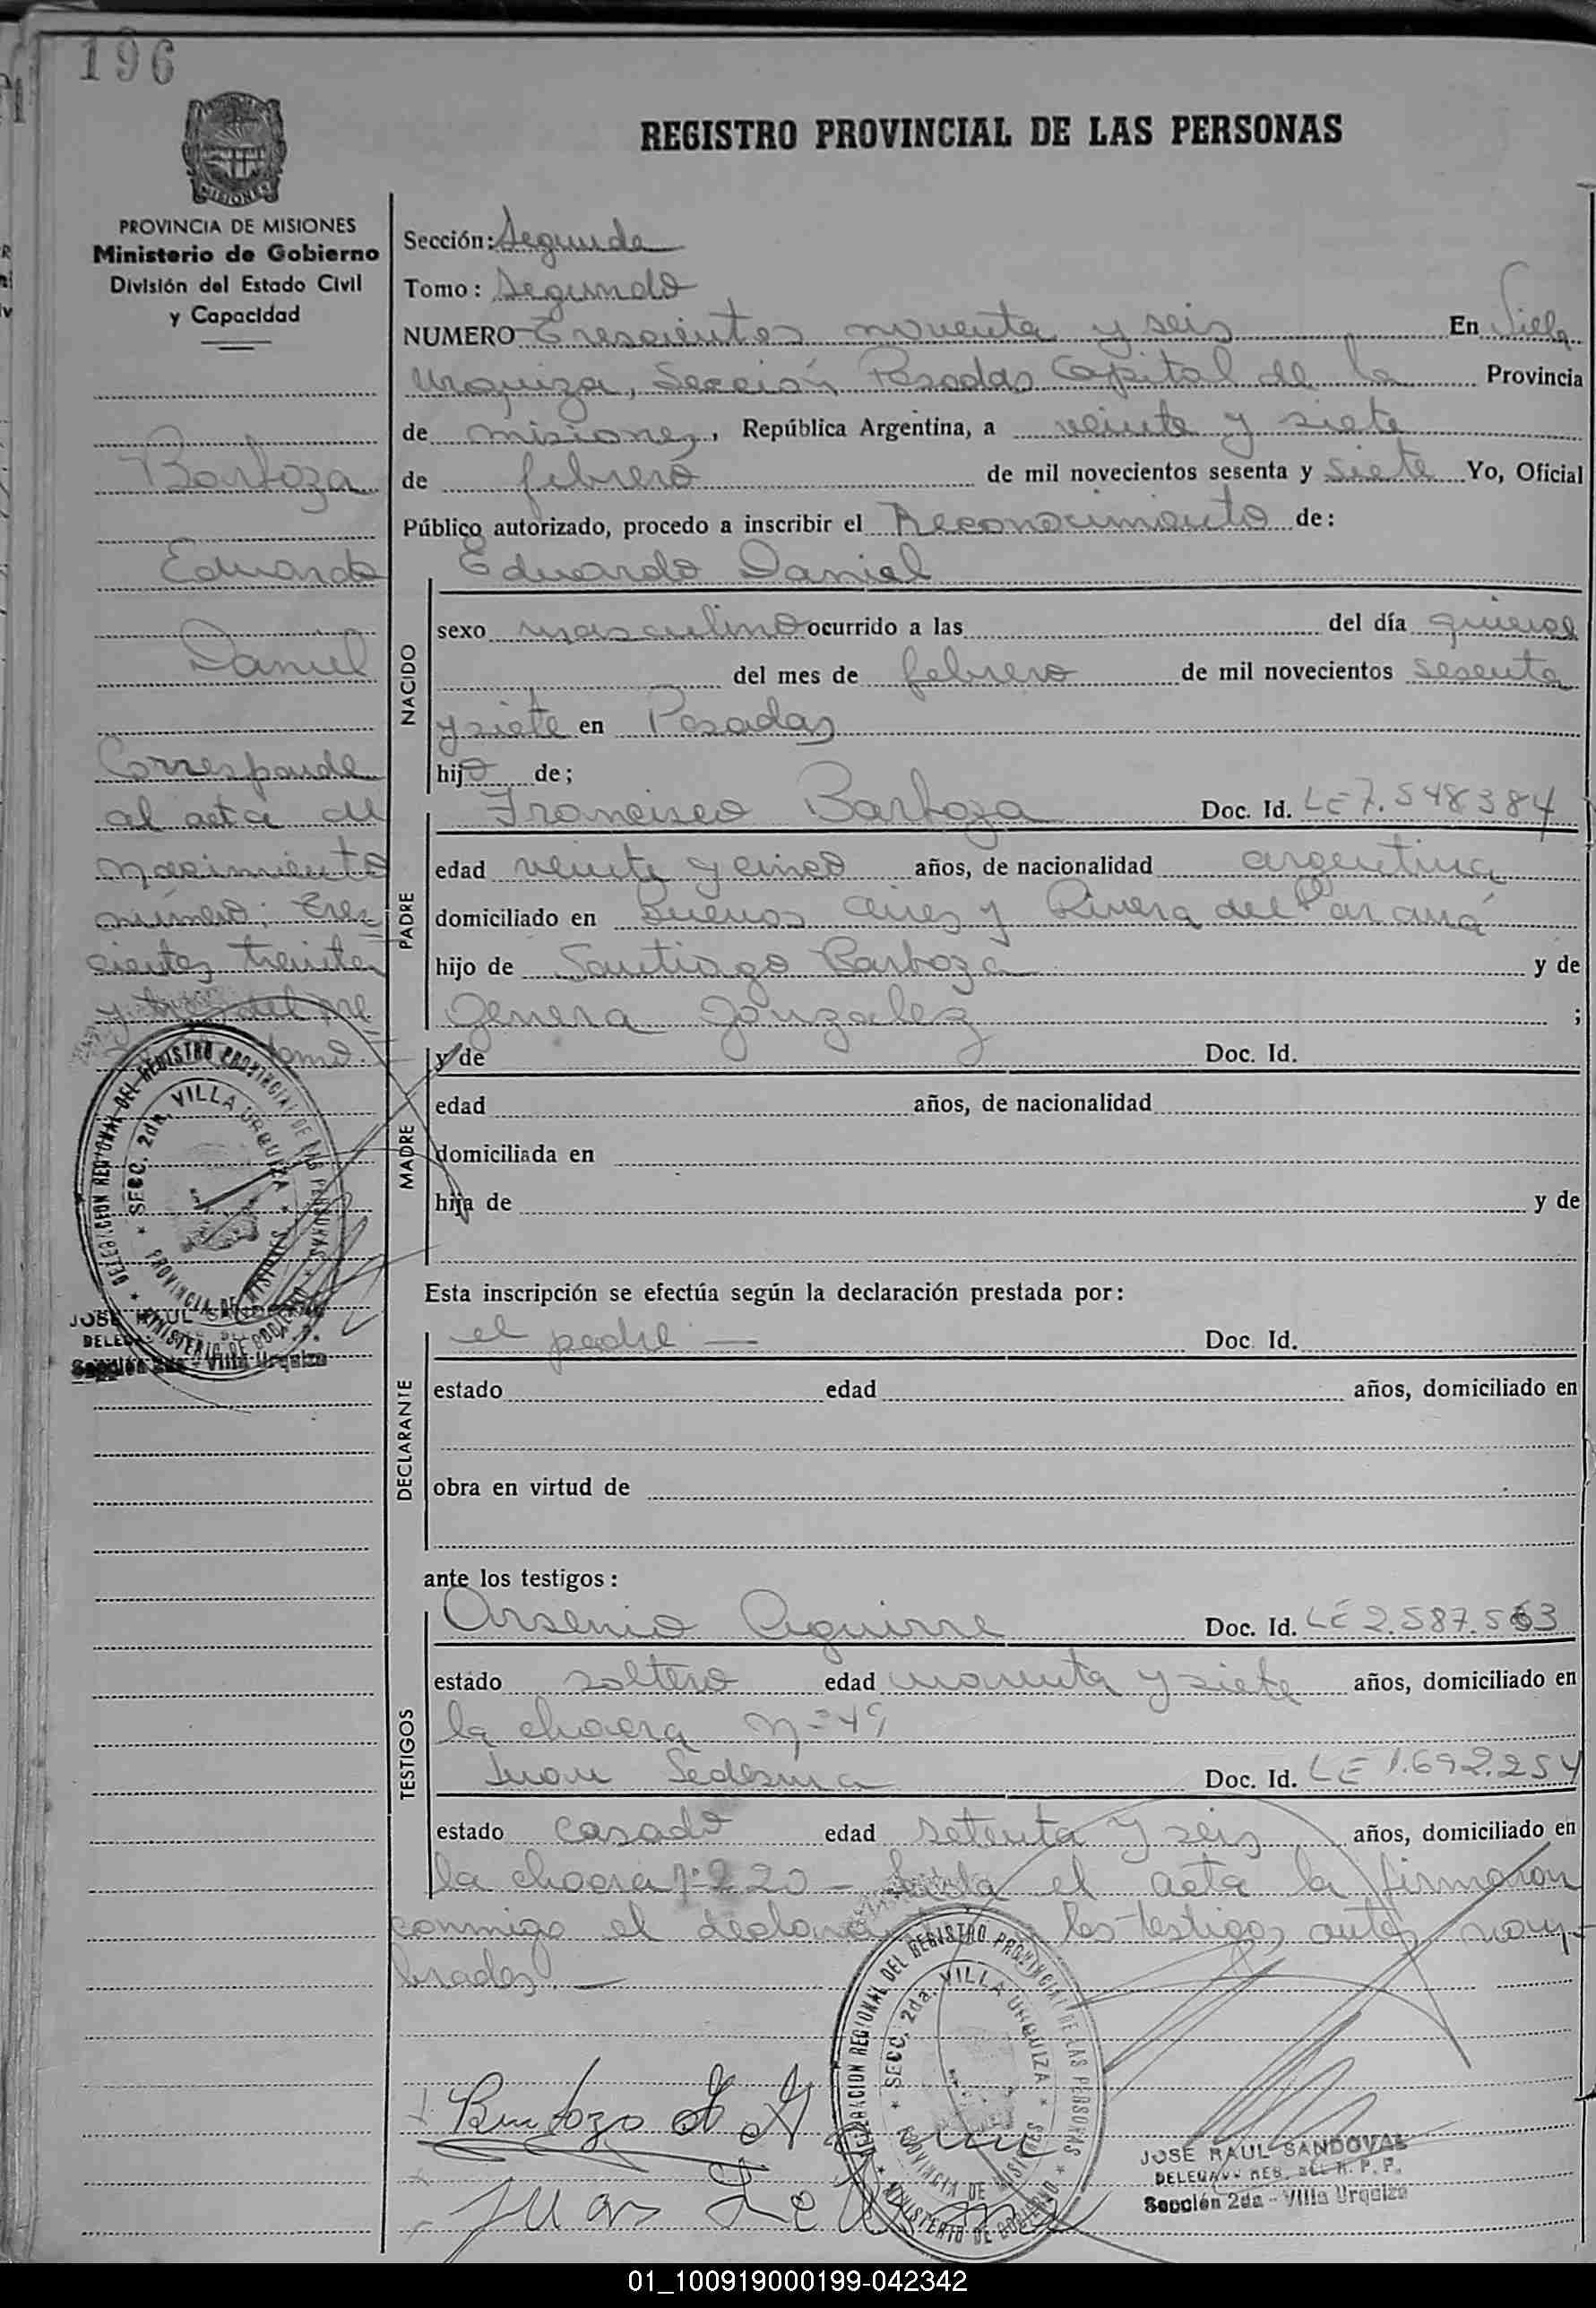 196
MISIONES
PROVINCIA DE MISIONES
Ministerio de Gobierno
División del Estado Civil
y Capacidad
Barboza
Eduardo
Daniel
Corresponde
al acta de
nacimiento
número; tres
cientos treinta
y tres del pre
tomo.
DELEGACION REGIONAL DEL REGISTRO PROVINCIAL DE LAS PERSONAS
SECC. 2da. VILLA URQUIZA
PROVINCIA DE MISIONES
MINISTERIO DE GOBIERNO
JOSE RAUL SANDOVAL
Sección 2da - Villa Urquiza
REGISTRO PROVINCIAL DE LAS PERSONAS
Sección: Segunda
Tomo: Segundo
NUMERO Trescientos noventa y seis En Villa
Urquiza, Sección Posadas Capital de la Provincia
de misiones, República Argentina, a veinte y siete
de febrero de mil novecientos sesenta y siete Yo, Oficial
Público autorizado, procedo a inscribir el Reconocimiento de:
Eduardo Daniel
NACIDO
sexo masculino ocurrido a las del día quince
del mes de febrero de mil novecientos sesenta
y siete en Posadas
hijo de;
PADRE
Francisco Barboza Doc. Id. LE 7.548384
edad veinte y cinco años, de nacionalidad argentina
domiciliado en Buenos Aires y Rivera del Paraná
hijo de Santiago Barboza y de
Genera Gonzalez ;
MADRE
y de Doc. Id.
edad años, de nacionalidad
domiciliada en
hija de y de
Esta inscripción se efectúa según la declaración prestada por:
DECLARANTE
el padre — Doc. Id.
estado edad años, domiciliado en
obra en virtud de
ante los testigos:
TESTIGOS
Arsenio Aguirre Doc. Id. LE 2.587.563
estado soltero edad y siete años, domiciliado en
la chacra nº 49
Juan Ledesma Doc. Id. LE 1.692.254
estado casado edad setenta y seis años, domiciliado en
la chacra nº 220 - el acta la firmaron
conmigo el los testigos antes nom-
brados. —
Barboza
Juan Ledesma
DELEGACION REGIONAL DEL REGISTRO PROVINCIAL DE LAS PERSONAS
SECC. 2da. VILLA URQUIZA
PROVINCIA DE MISIONES
MINISTERIO DE GOBIERNO
JOSE RAUL SANDOVAL
Sección 2da - Villa Urquiza
01_100919000199-042342